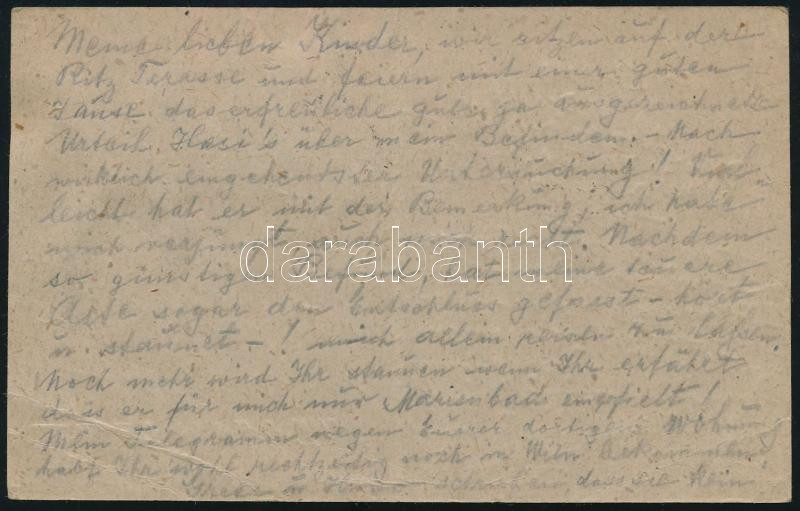 Meine lieben Kinder, wir sitzen auf der
Ritz Terasse und feiern mit einer guten
Jause das erfreuliche gute, ja ausgezeichnete
Urteil Hasi's über mein Befinden. - Nach
wirklich eingehendster Untersuchung! Viel-
leicht hat er mit der Bemerkung, ich habe
mich verjüngt, auch
Nachdem
so günstigen hat meine teuere
Alte sogar den Entschluss gefasst - hört
u. staunet - ! mich allein reisen zu lassen.
Noch mehr wird Ihr staunen wenn Ihr erfährt
dass er für mich nur Marienbad empfielt!
Mein Telegramm wegen Eurer dortigen Wohnung
habt Ihr wohl rechtzeitig noch in Wien bekommen.
u. schreiben, dass sie kein
darabanth